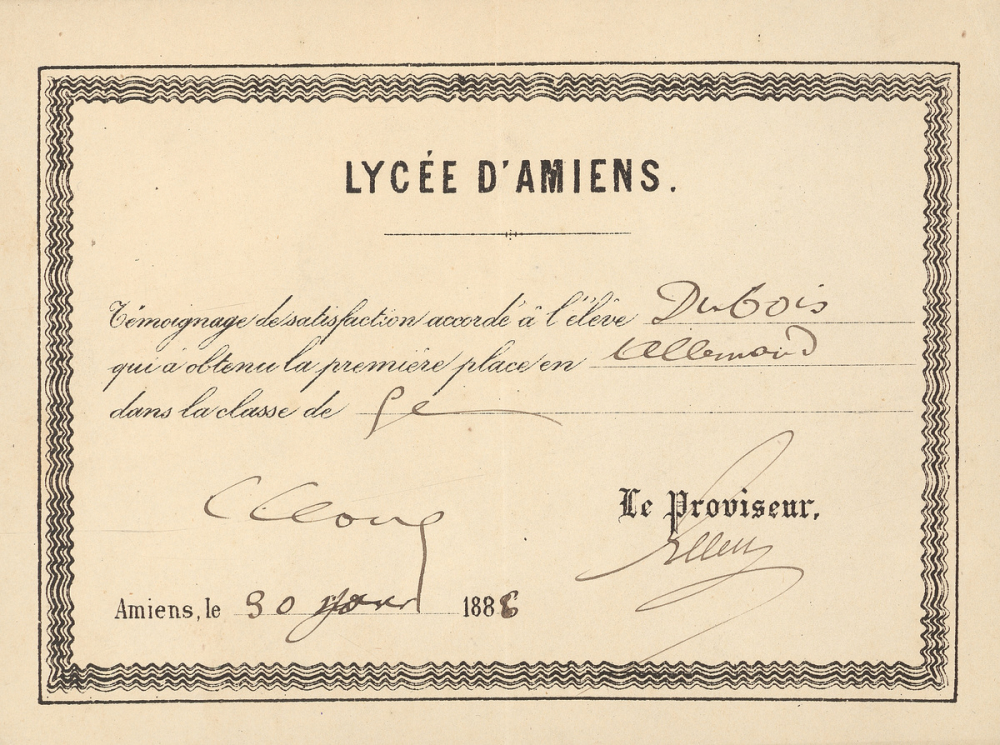 LYCÉE D'AMIENS.
Témoignage de satisfaction accordé à l'élève Dubois
qui a obtenu la première place en Allemand
dans la classe de
Le Proviseur,
Amiens, le 30 1886